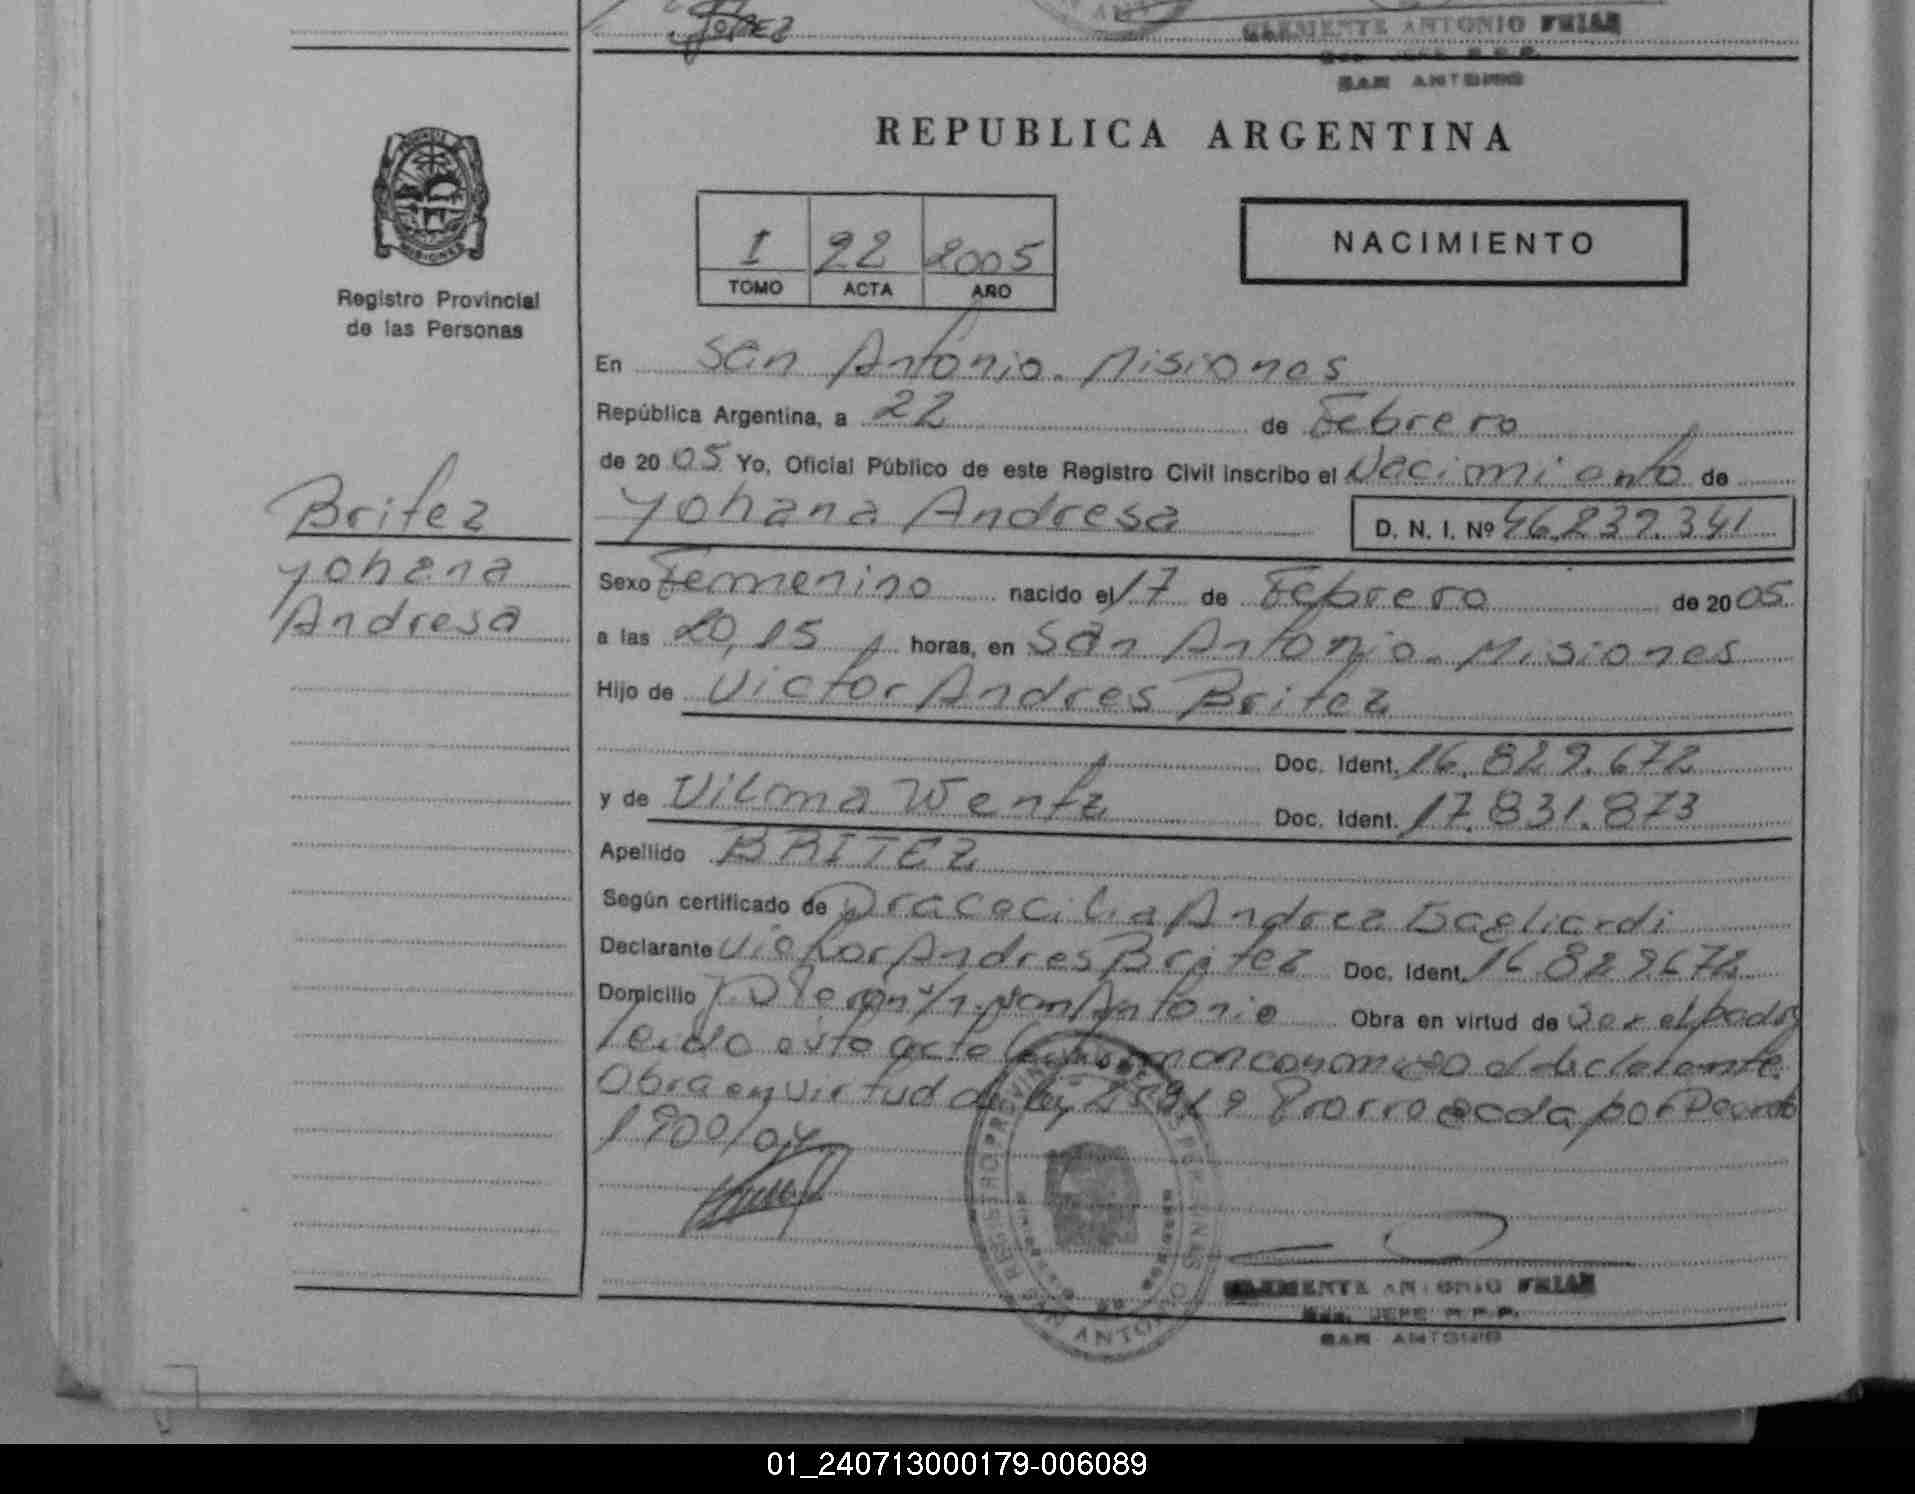 LOPEZ
CLEMENTE ANTONIO FRIAS
SAN ANTONIO
REPUBLICA ARGENTINA
I 22 2005
TOMO ACTA AÑO
NACIMIENTO
PROVINCIA
MISIONES
Registro Provincial
de las Personas
Britez
Yohana
Andresa
En San Antonio - Misiones
República Argentina, a 22 de Febrero
de 2005 Yo, Oficial Público de este Registro Civil inscribo el Nacimiento de
Yohana Andresa D. N. I. Nº 46.239.341
Sexo Femenino nacido el 17 de Febrero de 2005
a las 20,15 horas, en San Antonio - Misiones
Hijo de Victor Andres Britez
Doc. Ident. 16.829.672
y de Vilma Wentz Doc. Ident. 17.831.873
Apellido BRITEZ
Según certificado de Dra Cecilia Andrea Gagliardi
Declarante Victor Andres Britez Doc. Ident. 16 829672
Domicilio J.D Peron s/n. San Antonio Obra en virtud de Ser el padre
Leido este acta firma conmigo el declarante
Obra en virtud de ley Prorrogada por Decreto
1900/04
CLEMENTE ANTONIO FRIAS
JEFE R.P.P.
SAN ANTONIO
01_240713000179-006089